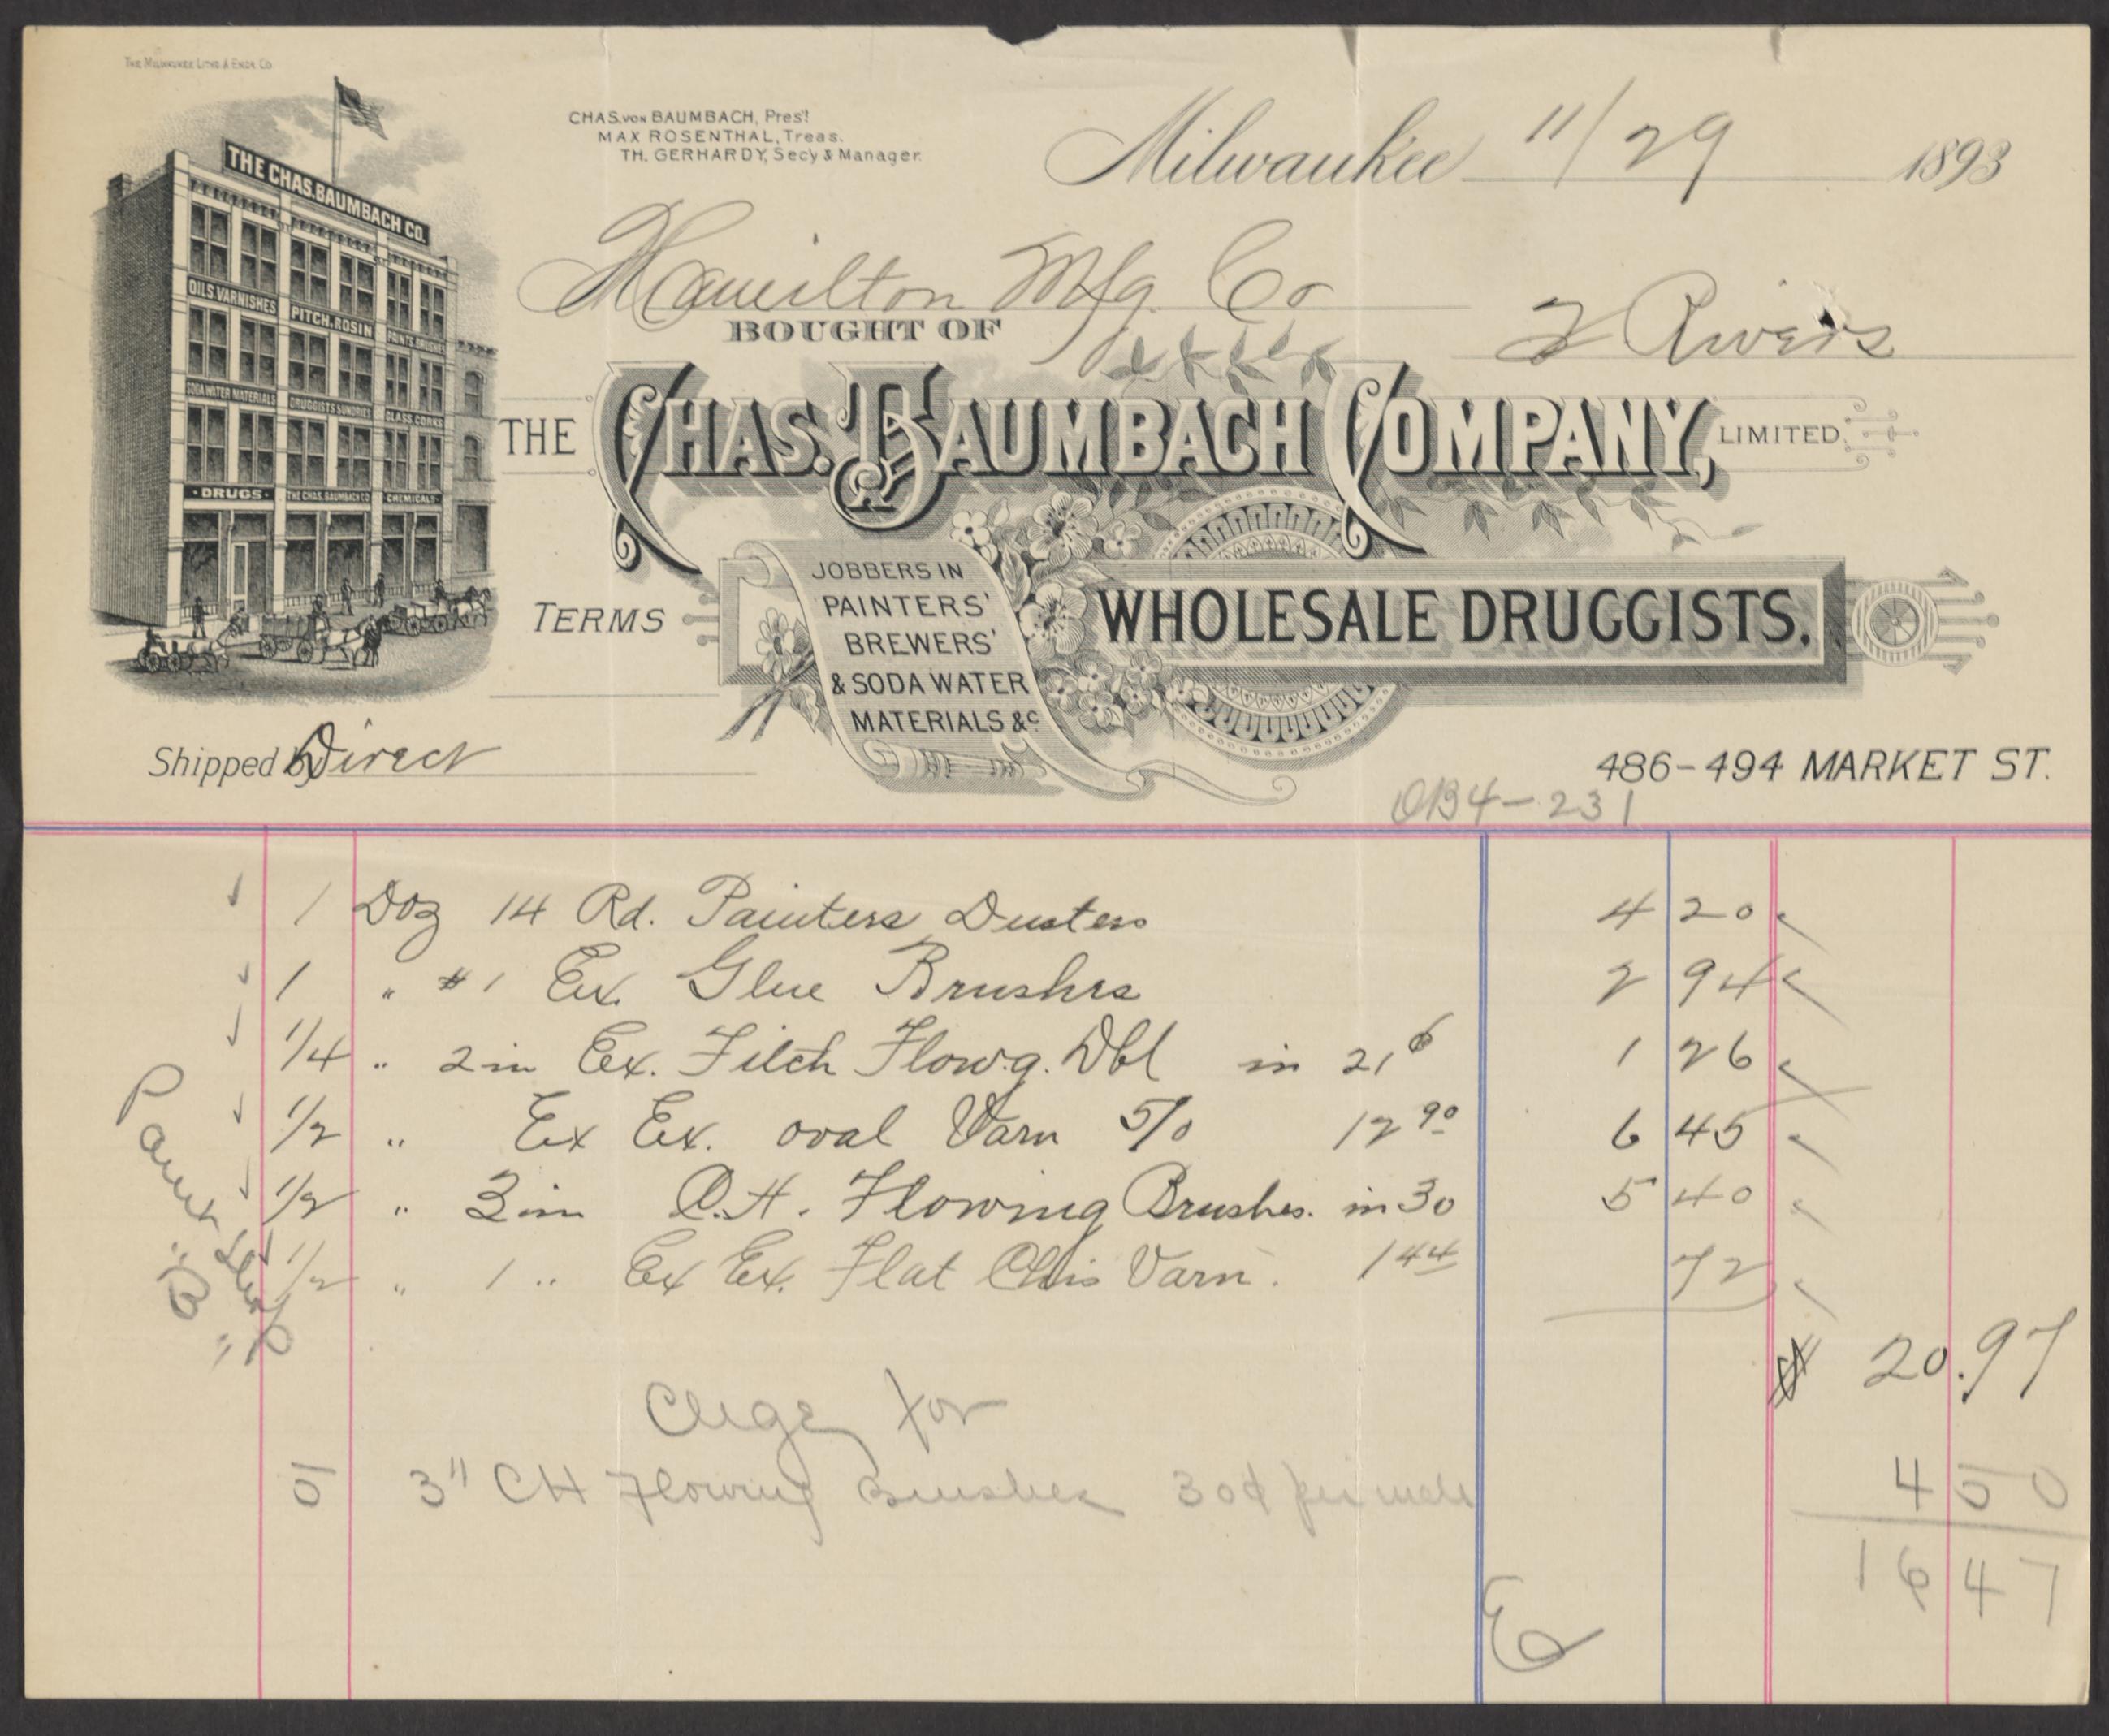 THE MILWAUKEE LITHO & ENGR. CO.
CHAS. VON BAUMBACH, Pres't
MAX ROSENTHAL, Treas.
TH. GERHARDY, Secy & Manager.
Milwaukee 11/29 1893
THE CHAS. BAUMBACH CO.
OILS. VARNISHES PITCH. ROSIN PAINTS. BRUSHES
SODA WATER MATERIALS DRUGGISTS SUNDRIES GLASS. CORKS
· DRUGS · THE CHAS. BAUMBACH CO. · CHEMICALS ·
Hamilton Mfg. Co
2 Rivers
BOUGHT OF
THE CHAS. BAUMBACH COMPANY, LIMITED.
JOBBERS IN
PAINTERS'
BREWERS'
& SODA WATER
MATERIALS &c
WHOLESALE DRUGGISTS.
TERMS
Shipped by Direct
486-494 MARKET ST.
OB4-231
1 Doz 14 Rd. Painters Dusters 4 20
1 " #1 Ex. Glue Brushes 2 94
1/4 " 2 in Ex. Fitch Flow.g. Dbl in 21¢ 1 26
1/2 " Ex Ex. oval Varn 5/0 12 90 6 45
1/2 " 3 in C.H. Flowing Brushes. in 30 5 40
1/2 " 1 " Ex Ex. Flat Chis Varn. 1 44 72
Paint Shop
"B"
$ 20.97
for
5 3" CH Flowing Brushes 30¢ per inch 4 50
16 47